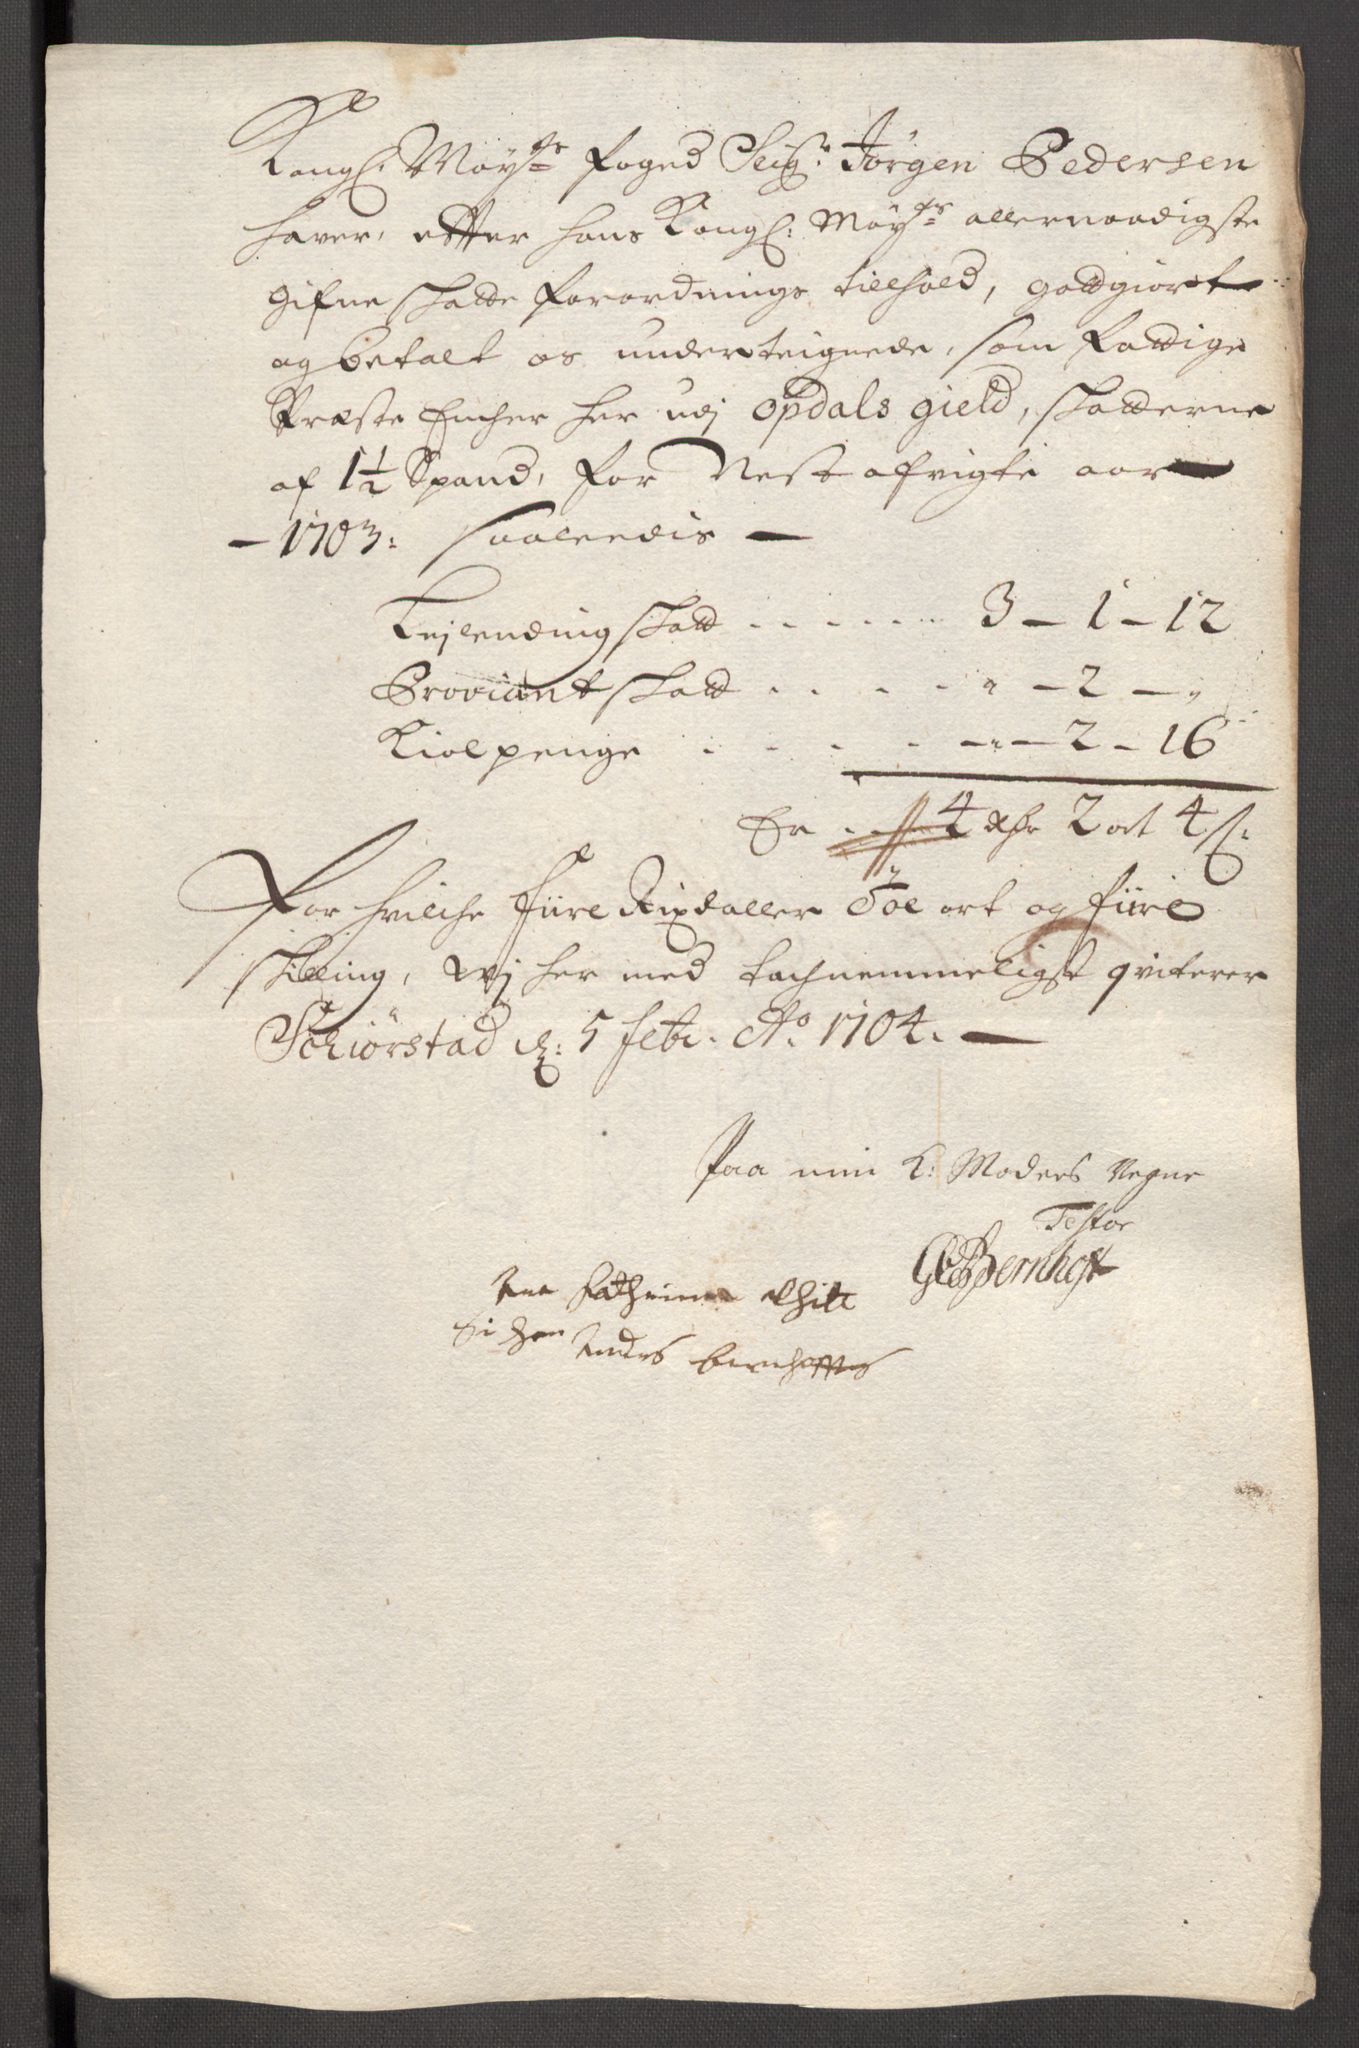 Kongl: Mayts foged Seigr: Jörgen Pedersen
hafver, effter hans Kongl: Mayts allernaadigste
gifne skatte forordnings tilhold, gottgiort
og betalt os underteignede, som fattige
Præste Encher her udj Opdals gield, skatterne
af 1½ Spand, for Nest afvigte aar
1703: saaledis
Leilending skatt . . . . . . 3 – 1 – 12
Proviant skatt . . . . " – 2 – "
Kiolpenge . . . . . " – 2 – 16
Er . . 4 Rdr 2 ort 4 s:
For hvilche fiire Rixdaller Toe ort og fiire
skilling, wj her med tachnemmeligst qviterer
Schiörstad d: 5 febr. Ao. 1704.
Paa min K: Moders Vegne
Testor
Bernhoft
Ane Cathrina
Anders bernhofftes